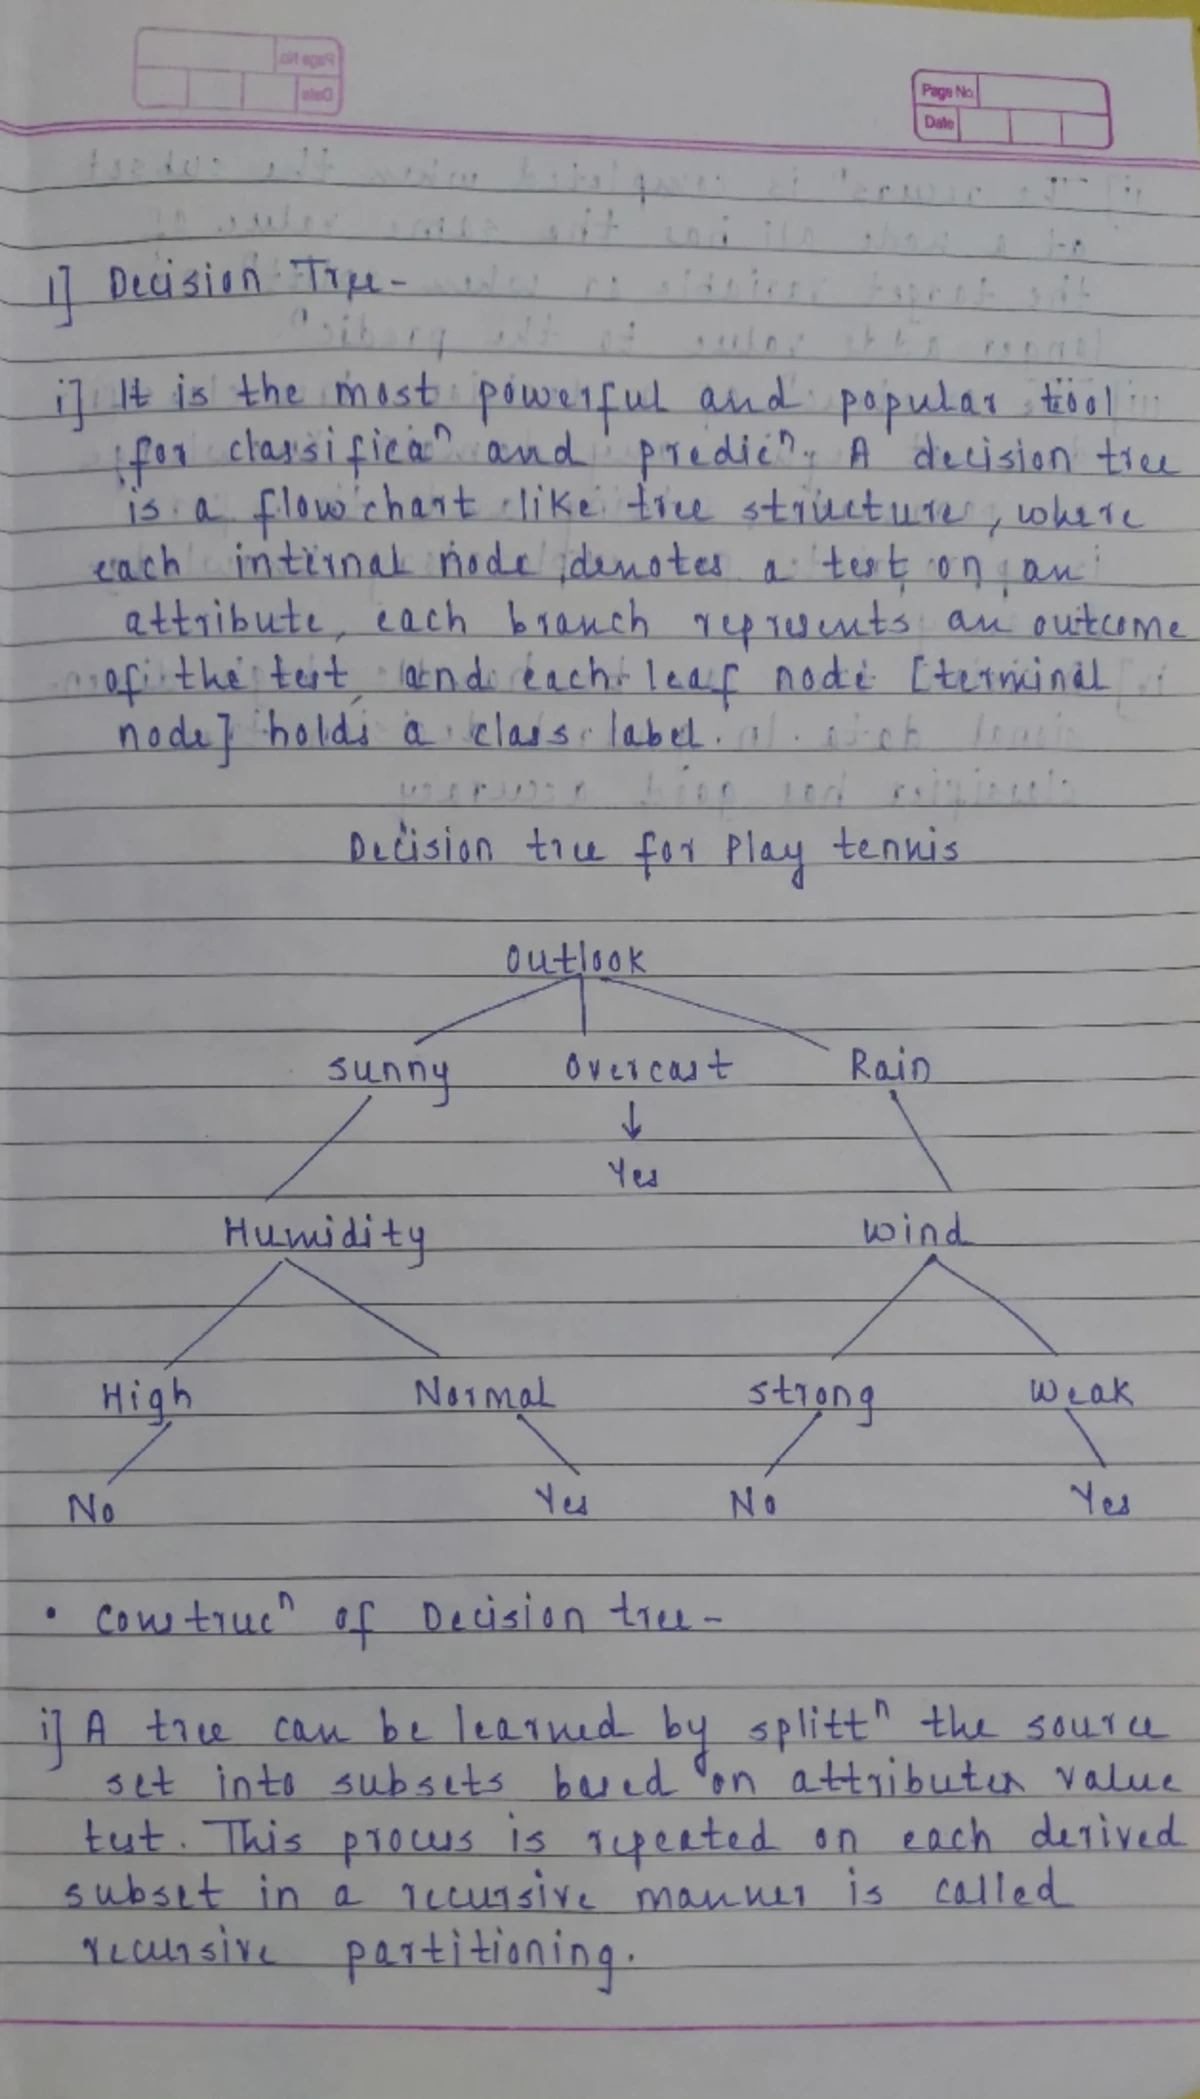 Page No.
Date
1] Decision Tree-
i] It is the most powerful and popular tool
for classificaⁿ and predicⁿ. A decision tree
is a flowchart like tree structure, where
each internal node denotes a test on an
attribute, each branch represents an outcome
of the test, and each leaf node [terminal
node] holds a class label.
Decision tree for Play tennis
Outlook
Sunny Overcast Rain
Yes
Humidity Wind
High Normal Strong Weak
No Yes No Yes
• Construcⁿ of Decision tree-
i] A tree can be learned by splittⁿ the source
set into subsets based on attributes value
test. This process is repeated on each derived
subset in a recursive manner is called
recursive partitioning.